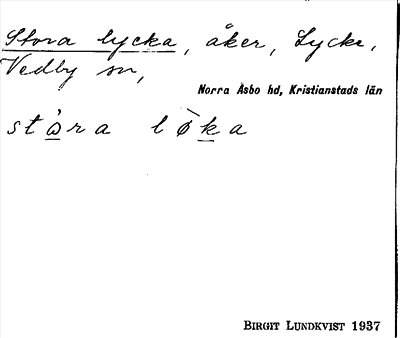 Stora lycka, åker, Lycke,
Vedby sn,
Norra Åsbo hd, Kristianstads län
stὼra lø̀ka
BIRGIT LUNDKVIST 1937